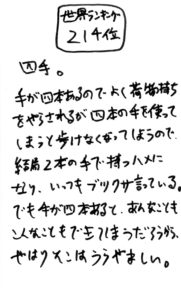 世界ランキング
214位
四手。
手が四本あるのでよく荷物持ち
をやらされるが四本の手を使って
しまうと歩けなくなってしまうので、
結局2本の手で持つハメに
なり、いつもブツクサ言っている。
でも手が四本あると、あんなことも
こんなこともできてしまうだろうから、
やはり少しはうらやましい。